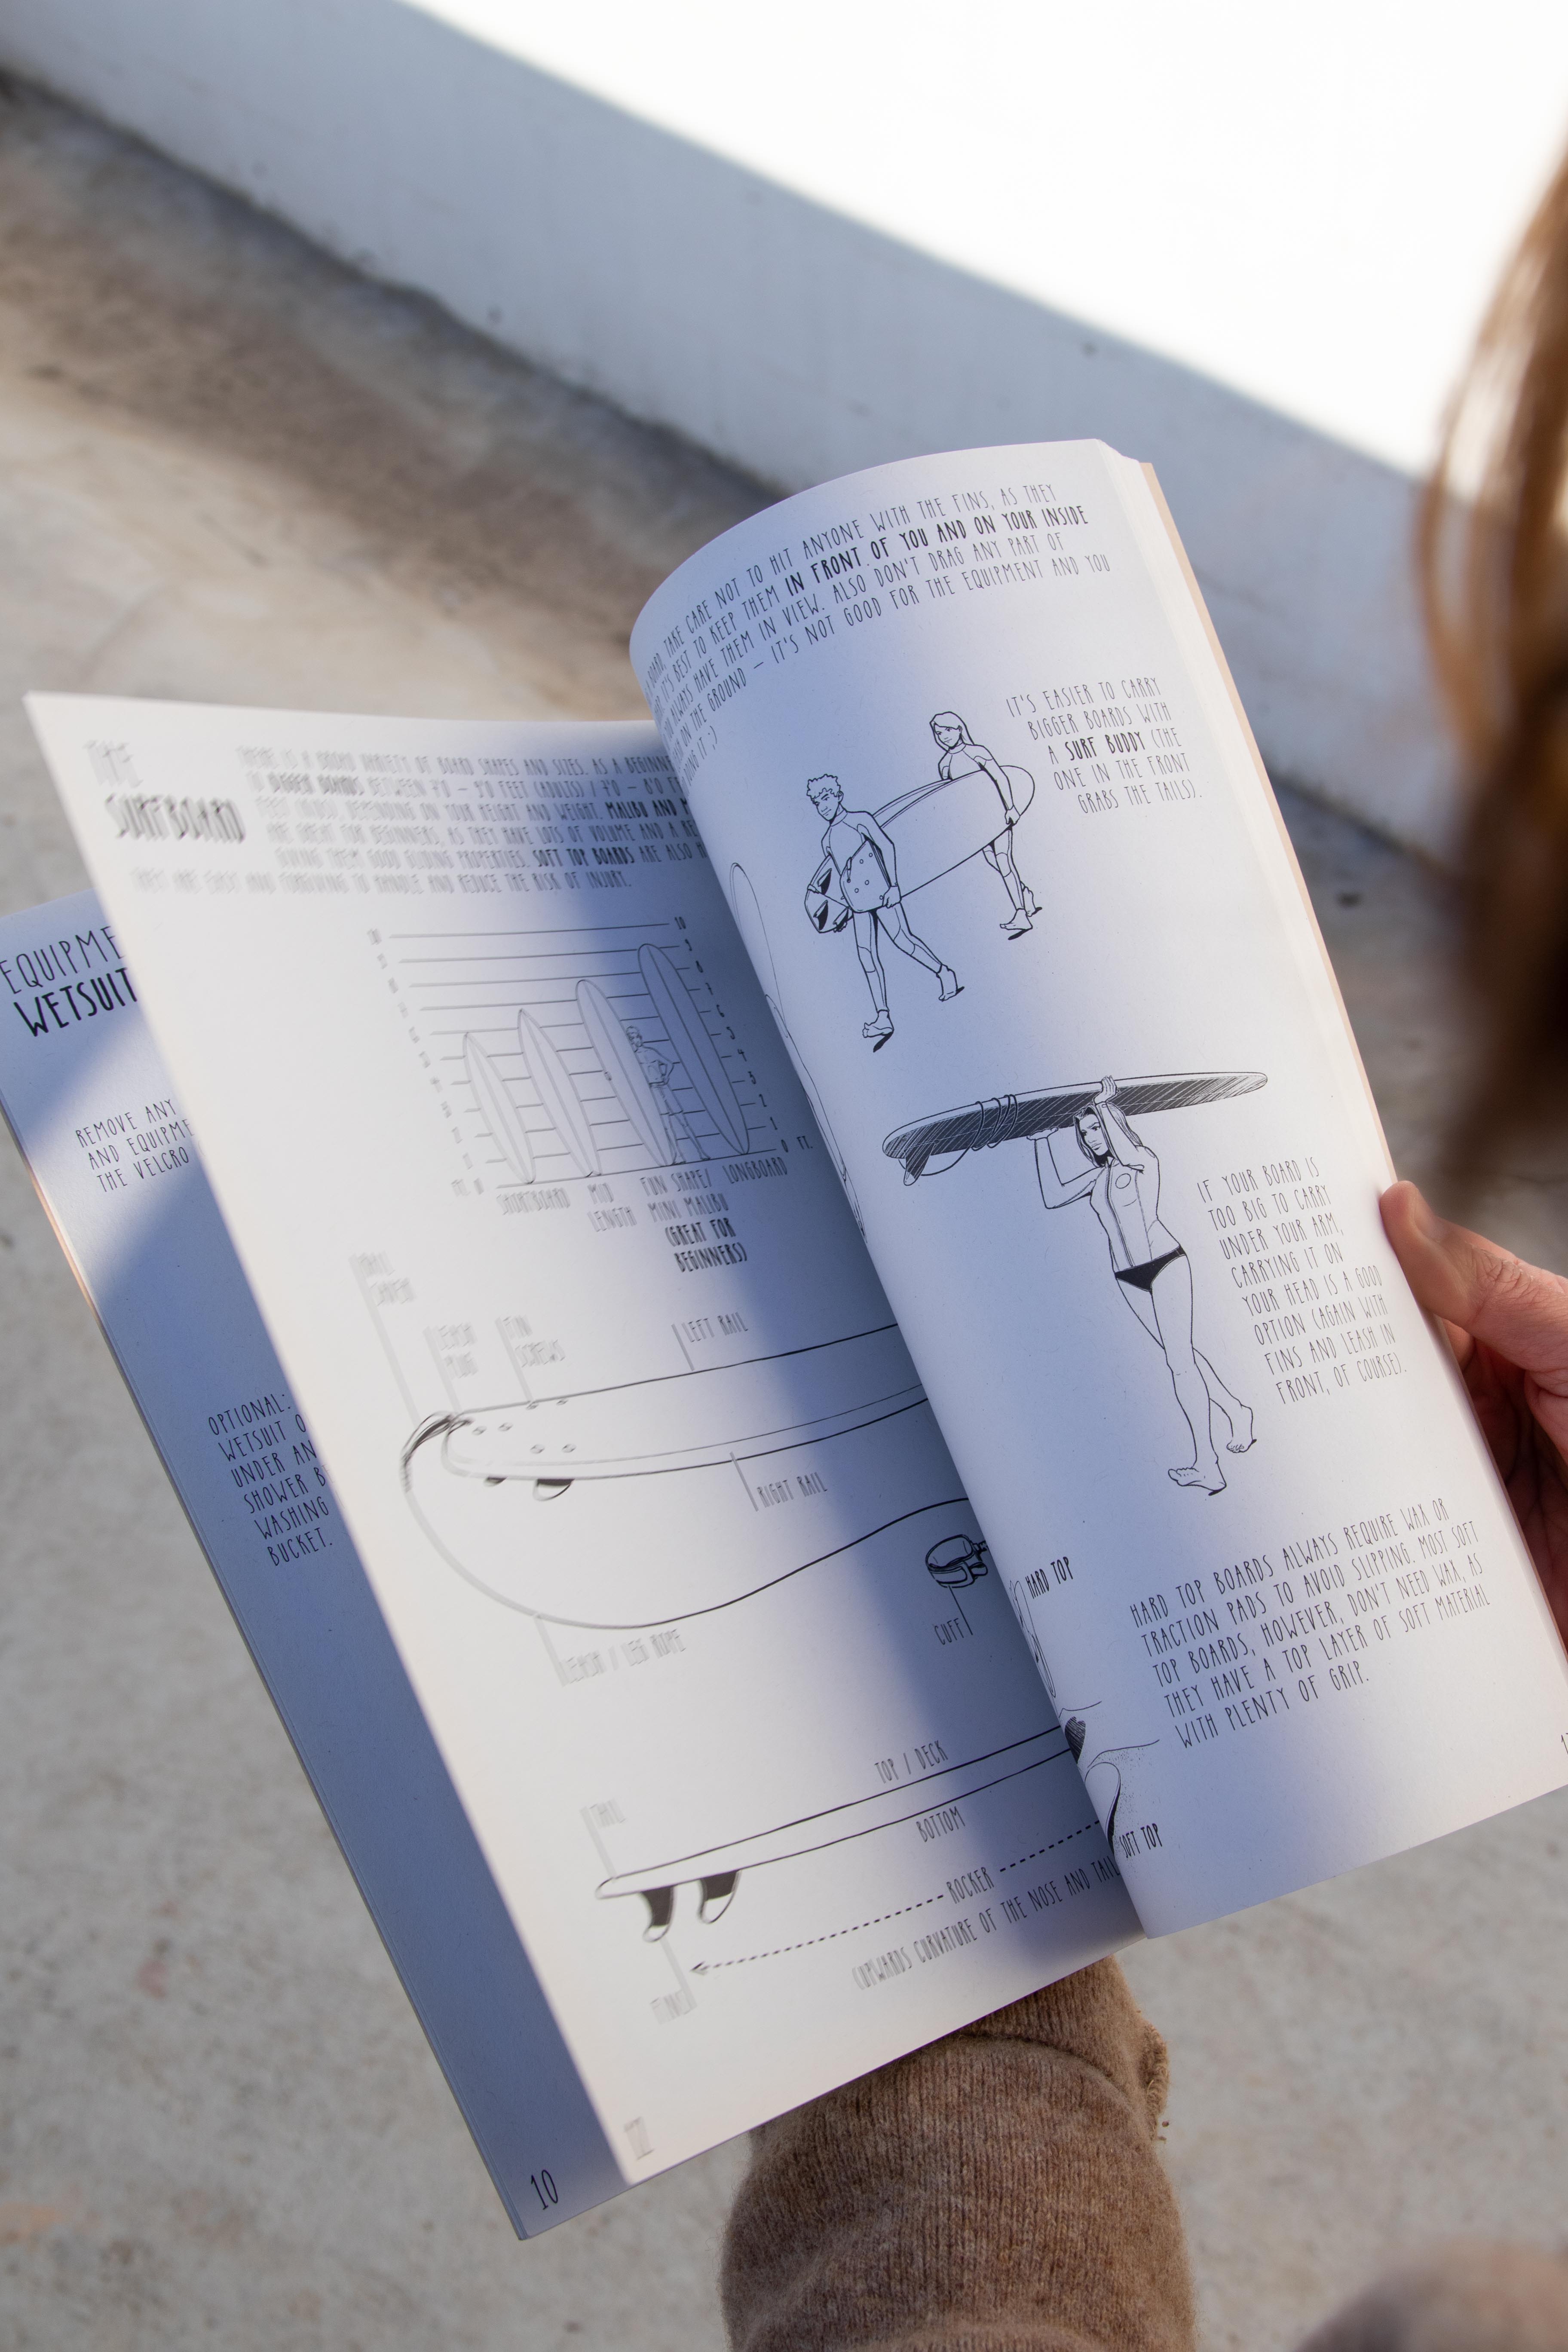 EQUIPME
WETSUIT
REMOVE ANY
AND EQUIPME
THE VELCRO
OPTIONAL:
WETSUIT O
UNDER AN
SHOWER B
WASHING
BUCKET.
10
THE
SURFBOARD
THERE IS A BROAD VARIETY OF BOARD SHAPES AND SIZES. AS A BEGINN
BIGGER BOARDS BETWEEN
FEET (ADULTS)
DEPENDING ON YOUR HEIGHT AND WEIGHT. MALIBU AND M
ARE GREAT FOR BEGINNERS, AS THEY HAVE LOTS OF VOLUME AND A
GIVING THEM GOOD GLIDING PROPERTIES. SOFT TOP BOARDS ARE ALSO
THEY ARE EASY AND FORGIVING TO HANDLE AND REDUCE THE RISK OF INJURY.
10
9
8
7
6
5
4
3
2
1
0 FT.
SHORTBOARD
MID
LENGTH
FUN SHAPE/
MINI MALIBU
(GREAT FOR
BEGINNERS)
LONGBOARD
LEASH
FIN
SCREWS
LEFT RAIL
RIGHT RAIL
LEASH / LEG ROPE
CUFF
TOP / DECK
TAIL
BOTTOM
ROCKER
(UPWARDS CURVATURE OF THE NOSE AND TAIL
FINS
12
BOARD, TAKE CARE NOT TO HIT ANYONE WITH THE FINS, AS THEY
IT'S BEST TO KEEP THEM IN FRONT OF YOU AND ON YOUR INSIDE
ALWAYS HAVE THEM IN VIEW. ALSO DON'T DRAG ANY PART OF
ON THE GROUND – IT'S NOT GOOD FOR THE EQUIPMENT AND YOU
IT ;)
IT'S EASIER TO CARRY
BIGGER BOARDS WITH
A SURF BUDDY (THE
ONE IN THE FRONT
GRABS THE TAILS).
IF YOUR BOARD IS
TOO BIG TO CARRY
UNDER YOUR ARM,
CARRYING IT ON
YOUR HEAD IS A GOOD
OPTION (AGAIN WITH
FINS AND LEASH IN
FRONT, OF COURSE).
HARD TOP
HARD TOP BOARDS ALWAYS REQUIRE WAX OR
TRACTION PADS TO AVOID SLIPPING. MOST SOFT
TOP BOARDS, HOWEVER, DON'T NEED WAX, AS
THEY HAVE A TOP LAYER OF SOFT MATERIAL
WITH PLENTY OF GRIP.
SOFT TOP